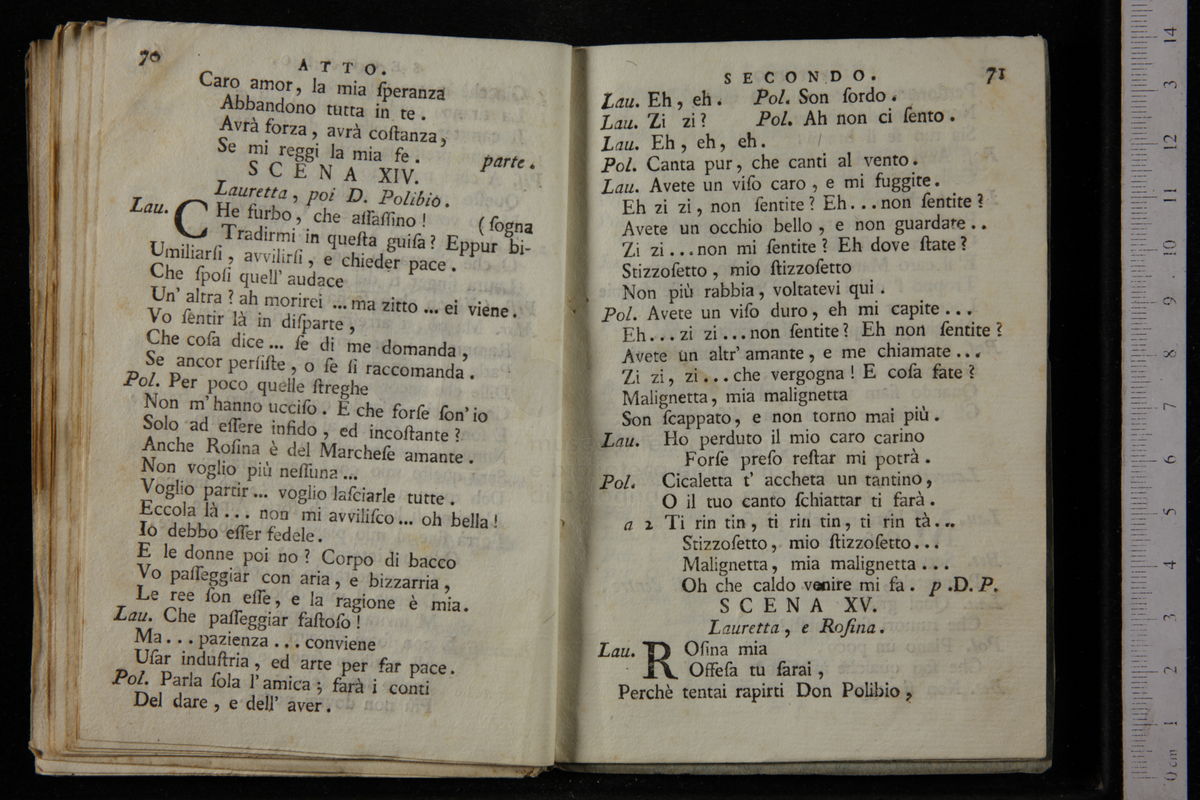 70
ATTO.
Caro amor, la mia ſperanza
Abbandono tutta in te.
Avrà forza, avrà coſtanza,
Se mi reggi la mia fe. parte.
SCENA XIV.
Lauretta, poi D. Polibio.
Lau. CHe furbo, che aſſaſſino! (ſogna
Tradirmi in queſta guiſa? Eppur bi-
Umiliarſi, avvilirſi, e chieder pace.
Che ſpoſi quell' audace
Un' altra? ah morirei ... ma zitto ... ei viene.
Vo ſentir là in diſparte,
Che coſa dice... ſe di me domanda,
Se ancor perſiſte, o ſe ſi raccomanda.
Pol. Per poco quelle ſtreghe
Non m'hanno ucciſo. E che forſe ſon' io
Solo ad eſſere infido, ed incoſtante?
Anche Roſina è del Marcheſe amante.
Non voglio più neſſuna...
Voglio partir... voglio laſciarle tutte.
Eccola là... non mi avviliſco... oh bella!
Io debbo eſſer fedele.
E le donne poi no? Corpo di bacco
Vo paſſeggiar con aria, e bizzarria,
Le ree ſon eſſe, e la ragione è mia.
Lau. Che paſſeggiar faſtoſo!
Ma... pazienza... conviene
Uſar induſtria, ed arte per far pace.
Pol. Parla ſola l'amica; farà i conti
Del dare, e dell' aver.
SECONDO. 71
Lau. Eh, eh. Pol. Son ſordo.
Lau. Zi zi? Pol. Ah non ci ſento.
Lau. Eh, eh, eh.
Pol. Canta pur, che canti al vento.
Lau. Avete un viſo caro, e mi fuggite.
Eh zi zi, non ſentite? Eh...non ſentite?
Avete un occhio bello, e non guardate..
Zi zi...non mi ſentite? Eh dove ſtate?
Stizzoſetto, mio ſtizzoſetto
Non più rabbia, voltatevi qui.
Pol. Avete un viſo duro, eh mi capite...
Eh...zi zi...non ſentite? Eh non ſentite?
Avete un altr' amante, e me chiamate...
Zi zi, zi...che vergogna! E coſa fate?
Malignetta, mia malignetta
Son ſcappato, e non torno mai più.
Lau. Ho perduto il mio caro carino
Forſe preſo reſtar mi potrà.
Pol. Cicaletta t' accheta un tantino,
O il tuo canto ſchiattar ti farà.
a 2 Ti rin tin, ti rin tin, ti rin tà...
Stizzoſetto, mio ſtizzoſetto...
Malignetta, mia malignetta...
Oh che caldo venire mi fa. p.D.P.
SCENA XV.
Lauretta, e Roſina.
Lau. ROſina mia
Offeſa tu ſarai,
Perchè tentai rapirti Don Polibio,
0 cm 1 2 3 4 5 6 7 8 9 10 11 12 13 14